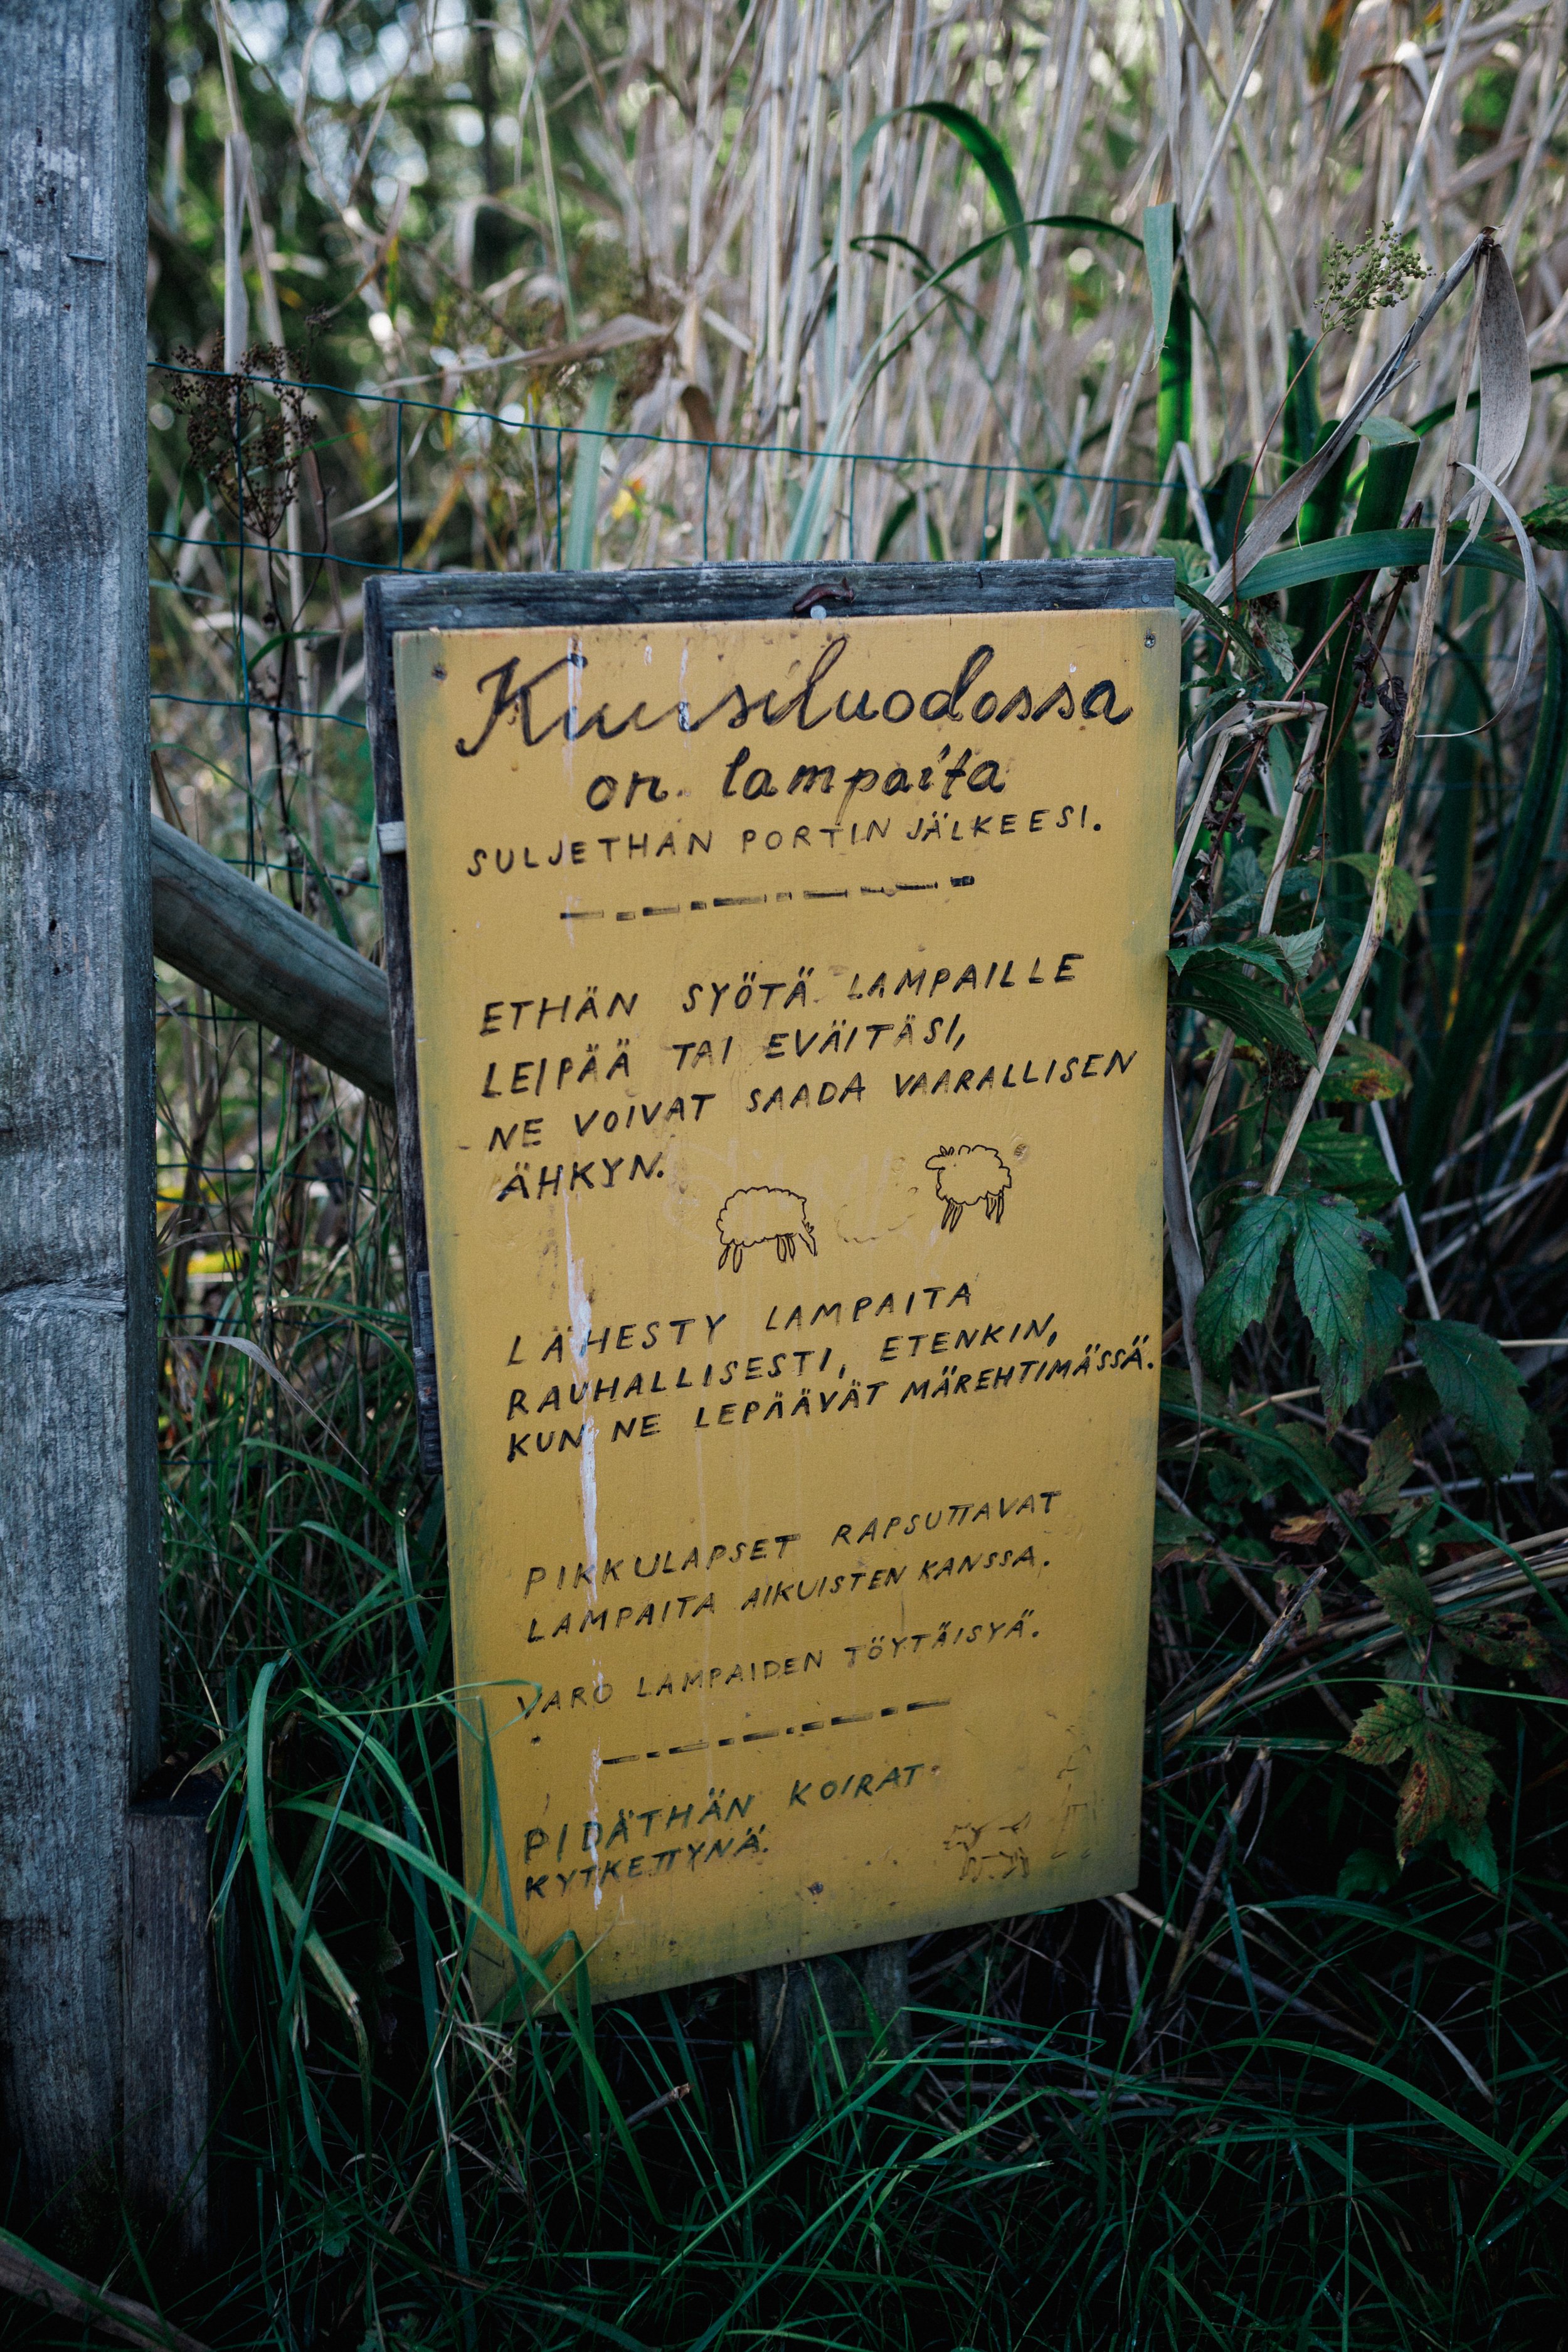 Kuusiluodossa
on lampaita
SULJETHAN PORTIN JÄLKEESI.
ETHÄN SYÖTÄ LAMPAILLE
LEIPÄÄ TAI EVÄITÄSI,
NE VOIVAT SAADA VAARALLISEN
ÄHKYN.
LÄHESTY LAMPAITA
RAUHALLISESTI, ETENKIN,
KUN NE LEPÄÄVÄT MÄREHTIMÄSSÄ.
PIKKULAPSET RAPSUTTAVAT
LAMPAITA AIKUISTEN KANSSA.
VARO LAMPAIDEN TÖYTÄISYÄ.
PIDÄTHÄN KOIRAT
KYTKETTYNÄ.